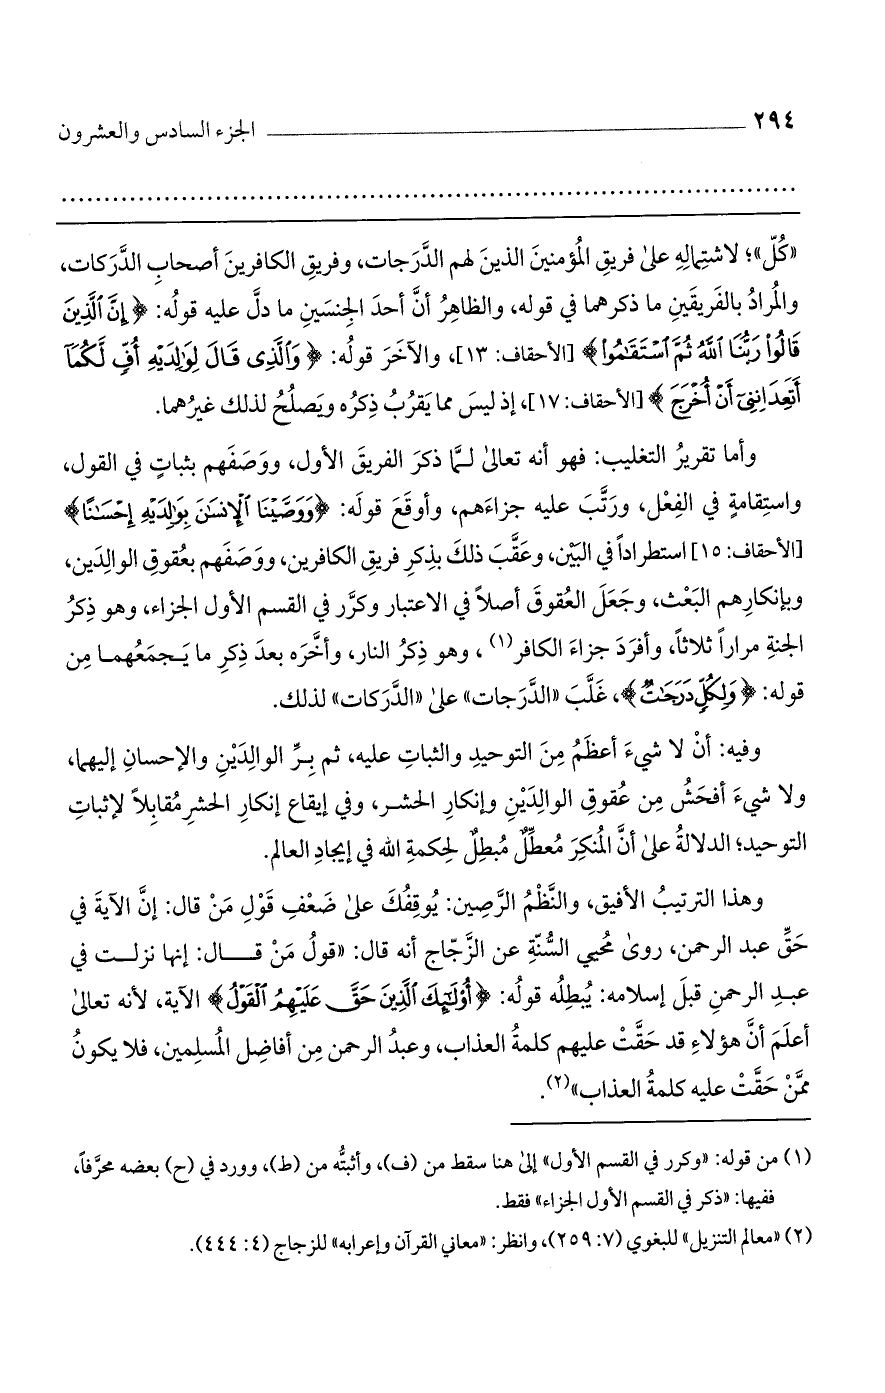 ٢٩٤ ـــــــــــــــــــــــــــــــــــــــــــــ الجزء السادس والعشرون
................................................................................
«كُلّ»؛ لاشتِمالِهِ على فريقِ المُؤمنينَ الذينَ لهم الدَّرَجات، وفريقِ الكافرينَ أصحابِ الدَّرَكات،
والمُرادُ بالفَريقَينِ ما ذكرهما في قوله، والظاهِرُ أنَّ أحدَ الجِنسَينِ ما دلَّ عليه قولُه: ﴿إِنَّ ٱلَّذِينَ
قَالُواْ رَبُّنَا ٱللَّهُ ثُمَّ ٱسْتَقَٰمُواْ﴾ [الأحقاف: ١٣]، والآخَرَ قولُه: ﴿وَٱلَّذِى قَالَ لِوَٰلِدَيْهِ أُفٍّ لَّكُمَآ
أَتَعِدَانِنِىٓ أَنْ أُخْرَجَ﴾ [الأحقاف: ١٧]، إذ ليسَ مما يَقرُبُ ذِكرُه ويَصلُحُ لذلك غيرُهما.
وأما تقريرُ التغليب: فهو أنه تعالىٰ لـمَّا ذكرَ الفريقَ الأول، ووَصَفَهم بثباتٍ في القول،
واستِقامةٍ في الفِعْل، ورَتَّبَ عليه جزاءَهم، وأوقَعَ قولَه: ﴿وَوَصَّيْنَا ٱلْإِنسَٰنَ بِوَٰلِدَيْهِ إِحْسَٰنًا﴾
[الأحقاف: ١٥] استطراداً في البَيْن، وعَقَّبَ ذلكَ بذِكرِ فريقِ الكافرين، ووَصَفَهم بعُقوقِ الوالِدَين،
وبإنكارِهم البَعْث، وجَعَلَ العُقوقَ أصلاً في الاعتبار وكرَّر في القسم الأول الجزاء، وهو ذِكرُ
الجنةِ مراراً ثلاثاً، وأفرَدَ جزاءَ الكافر(١)، وهو ذِكرُ النار، وأخَّرَه بعدَ ذِكرِ ما يَـجمَعُهمـا مِن
قوله: ﴿وَلِكُلٍّ دَرَجَٰتٌ﴾، غَلَّبَ «الدَّرَجات» علىٰ «الدَّرَكات» لذلك.
وفيه: أنْ لا شيءَ أعظَمُ مِنَ التوحيدِ والثباتِ عليه، ثم بِرِّ الوالِدَيْنِ والإحسانِ إليهما،
ولا شيءَ أفحَشُ مِن عُقوقِ الوالِدَيْنِ وإنكارِ الحشـر، وفي إيقاعِ إنكارِ الحشرِ مُقابِلاً لإثباتِ
التوحيد؛ الدلالةُ علىٰ أنَّ المُنكِرَ مُعطِّلٌ مُبطِلٌ لِحكمةِ الله في إيجادِ العالم.
وهذا الترتيبُ الأفيق، والنَّظْمُ الرَّصِين: يُوقِفُكَ علىٰ ضَعْفِ قَوْلِ مَنْ قال: إنَّ الآيةَ في
حَقِّ عبد الرحمن، روىٰ مُحيي السُّنّةِ عن الزَّجّاج أنه قال: «قولُ مَنْ قـــال: إنها نزلـــت في
عبـدِ الرحمنِ قبلَ إسلامه: يُبطِلُه قولُه: ﴿أُوْلَٰٓئِكَ ٱلَّذِينَ حَقَّ عَلَيْهِمُ ٱلْقَوْلُ﴾ الآية، لأنه تعالىٰ
أعلَمَ أنَّ هؤلاءِ قد حَقَّتْ عليهم كلمةُ العذاب، وعبدُ الرحمن مِن أفاضِل المُسلِمين، فلا يكونُ
ممَّنْ حَقَّتْ عليه كلمةُ العذاب»(٢).
(١) من قوله: «وكرر في القسم الأول» إلىٰ هنا سقط من (ف)، وأثبتُّه من (ط)، وورد في (ح) بعضه محرَّفاً،
ففيها: «ذكر في القسم الأول الجزاء» فقط.
(٢) «معالم التنزيل» للبغوي (٧: ٢٥٩)، وانظر: «معاني القرآن وإعرابه» للزجاج (٤: ٤٤٤).